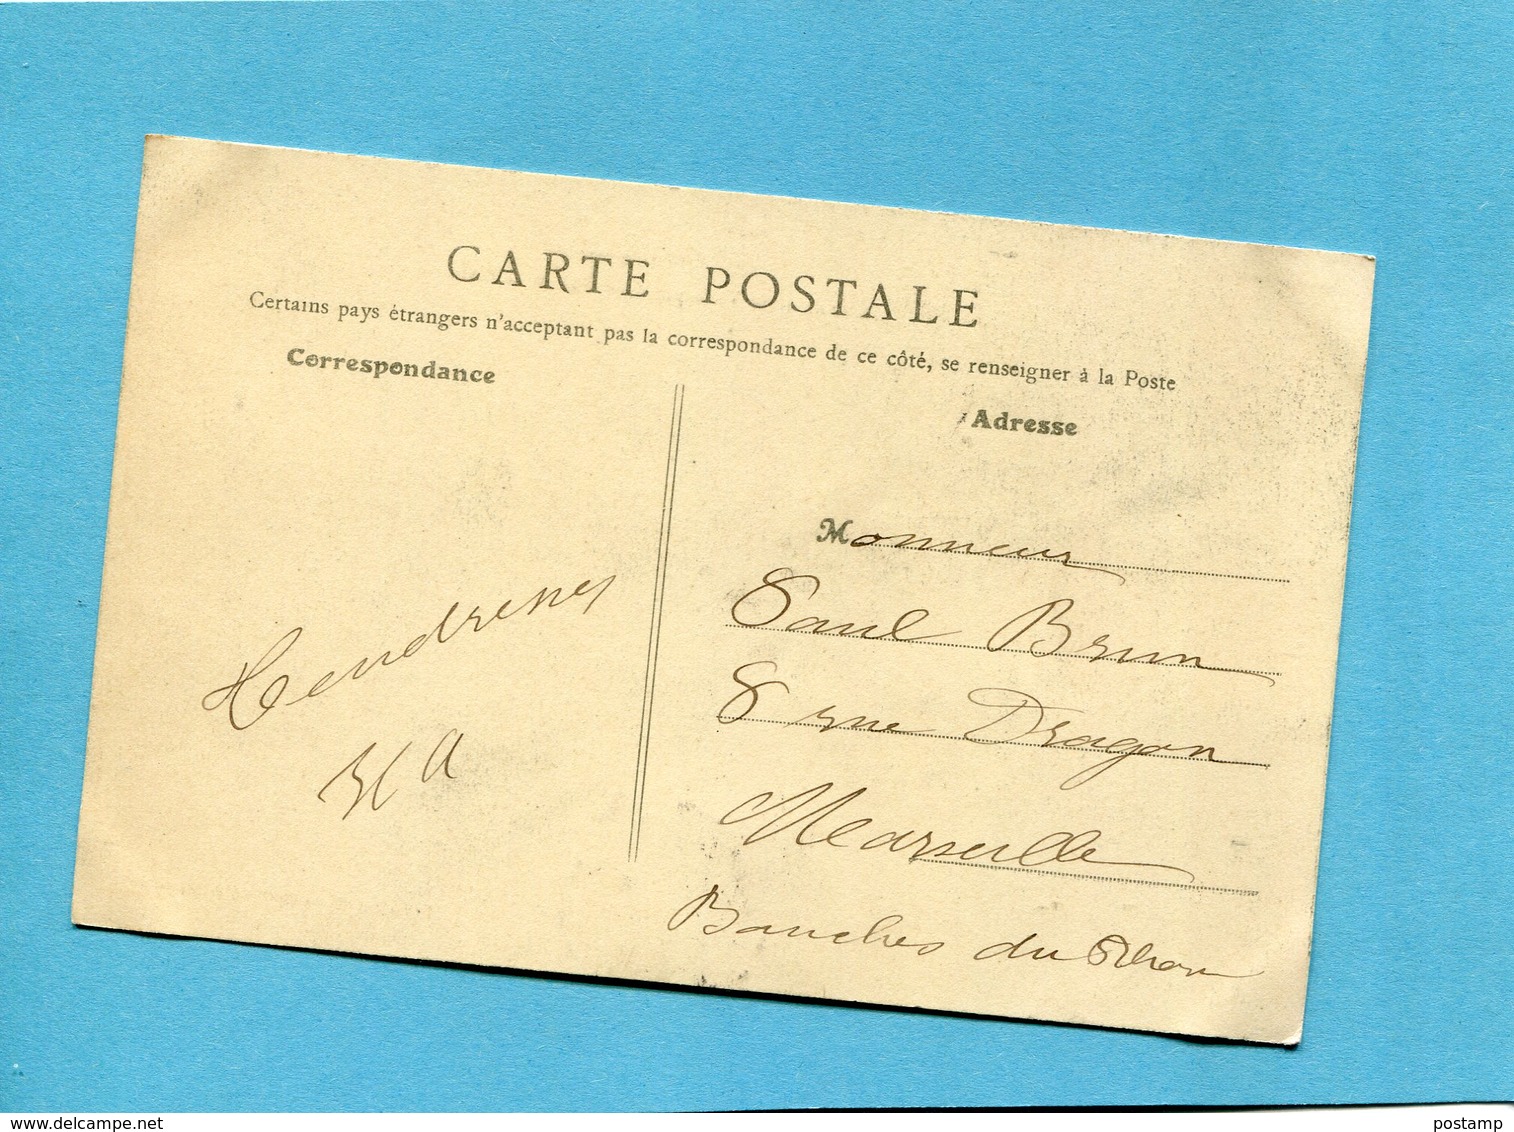 CARTE POSTALE
Certains pays étrangers n'acceptant pas la correspondance de ce côté, se renseigner à la Poste
Correspondance
Adresse
Monsieur
Paul Brun
8 rue Dragon
Marseille
Bouches du Rhone
Tendresses
postamp